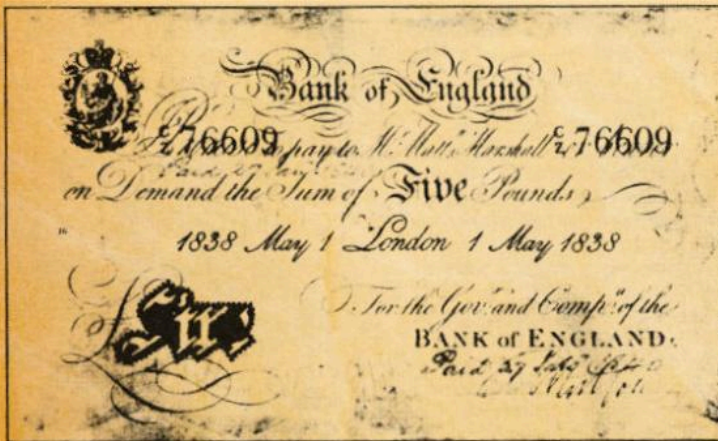 Bank of England
76609 76609
to pay to Mr. Matt. Marshall
on Demand the Sum of Five Pounds
16
1838 May 1 London 1 May 1838
For the Govr. and Compa. of the
£Five
BANK of ENGLAND.
Paid 27